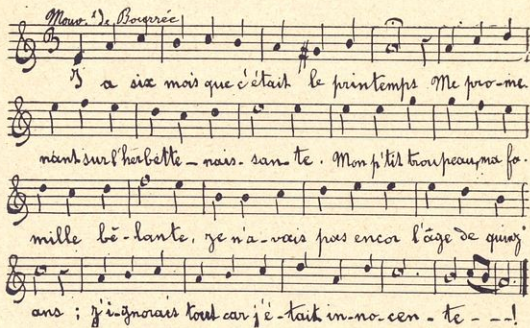 Mouv.t de Bourrée
Y a six mois que c'était le printemps Me pro-me-
nant sur l'herbette - nais - san - te. Mon p'tit troupeau, ma fa-
mille bê - lante, je n'a - vais pas encor l'âge de quinz'
ans ; j'i - gnorais tout car j'é - tait in - no - cen - te - - - !